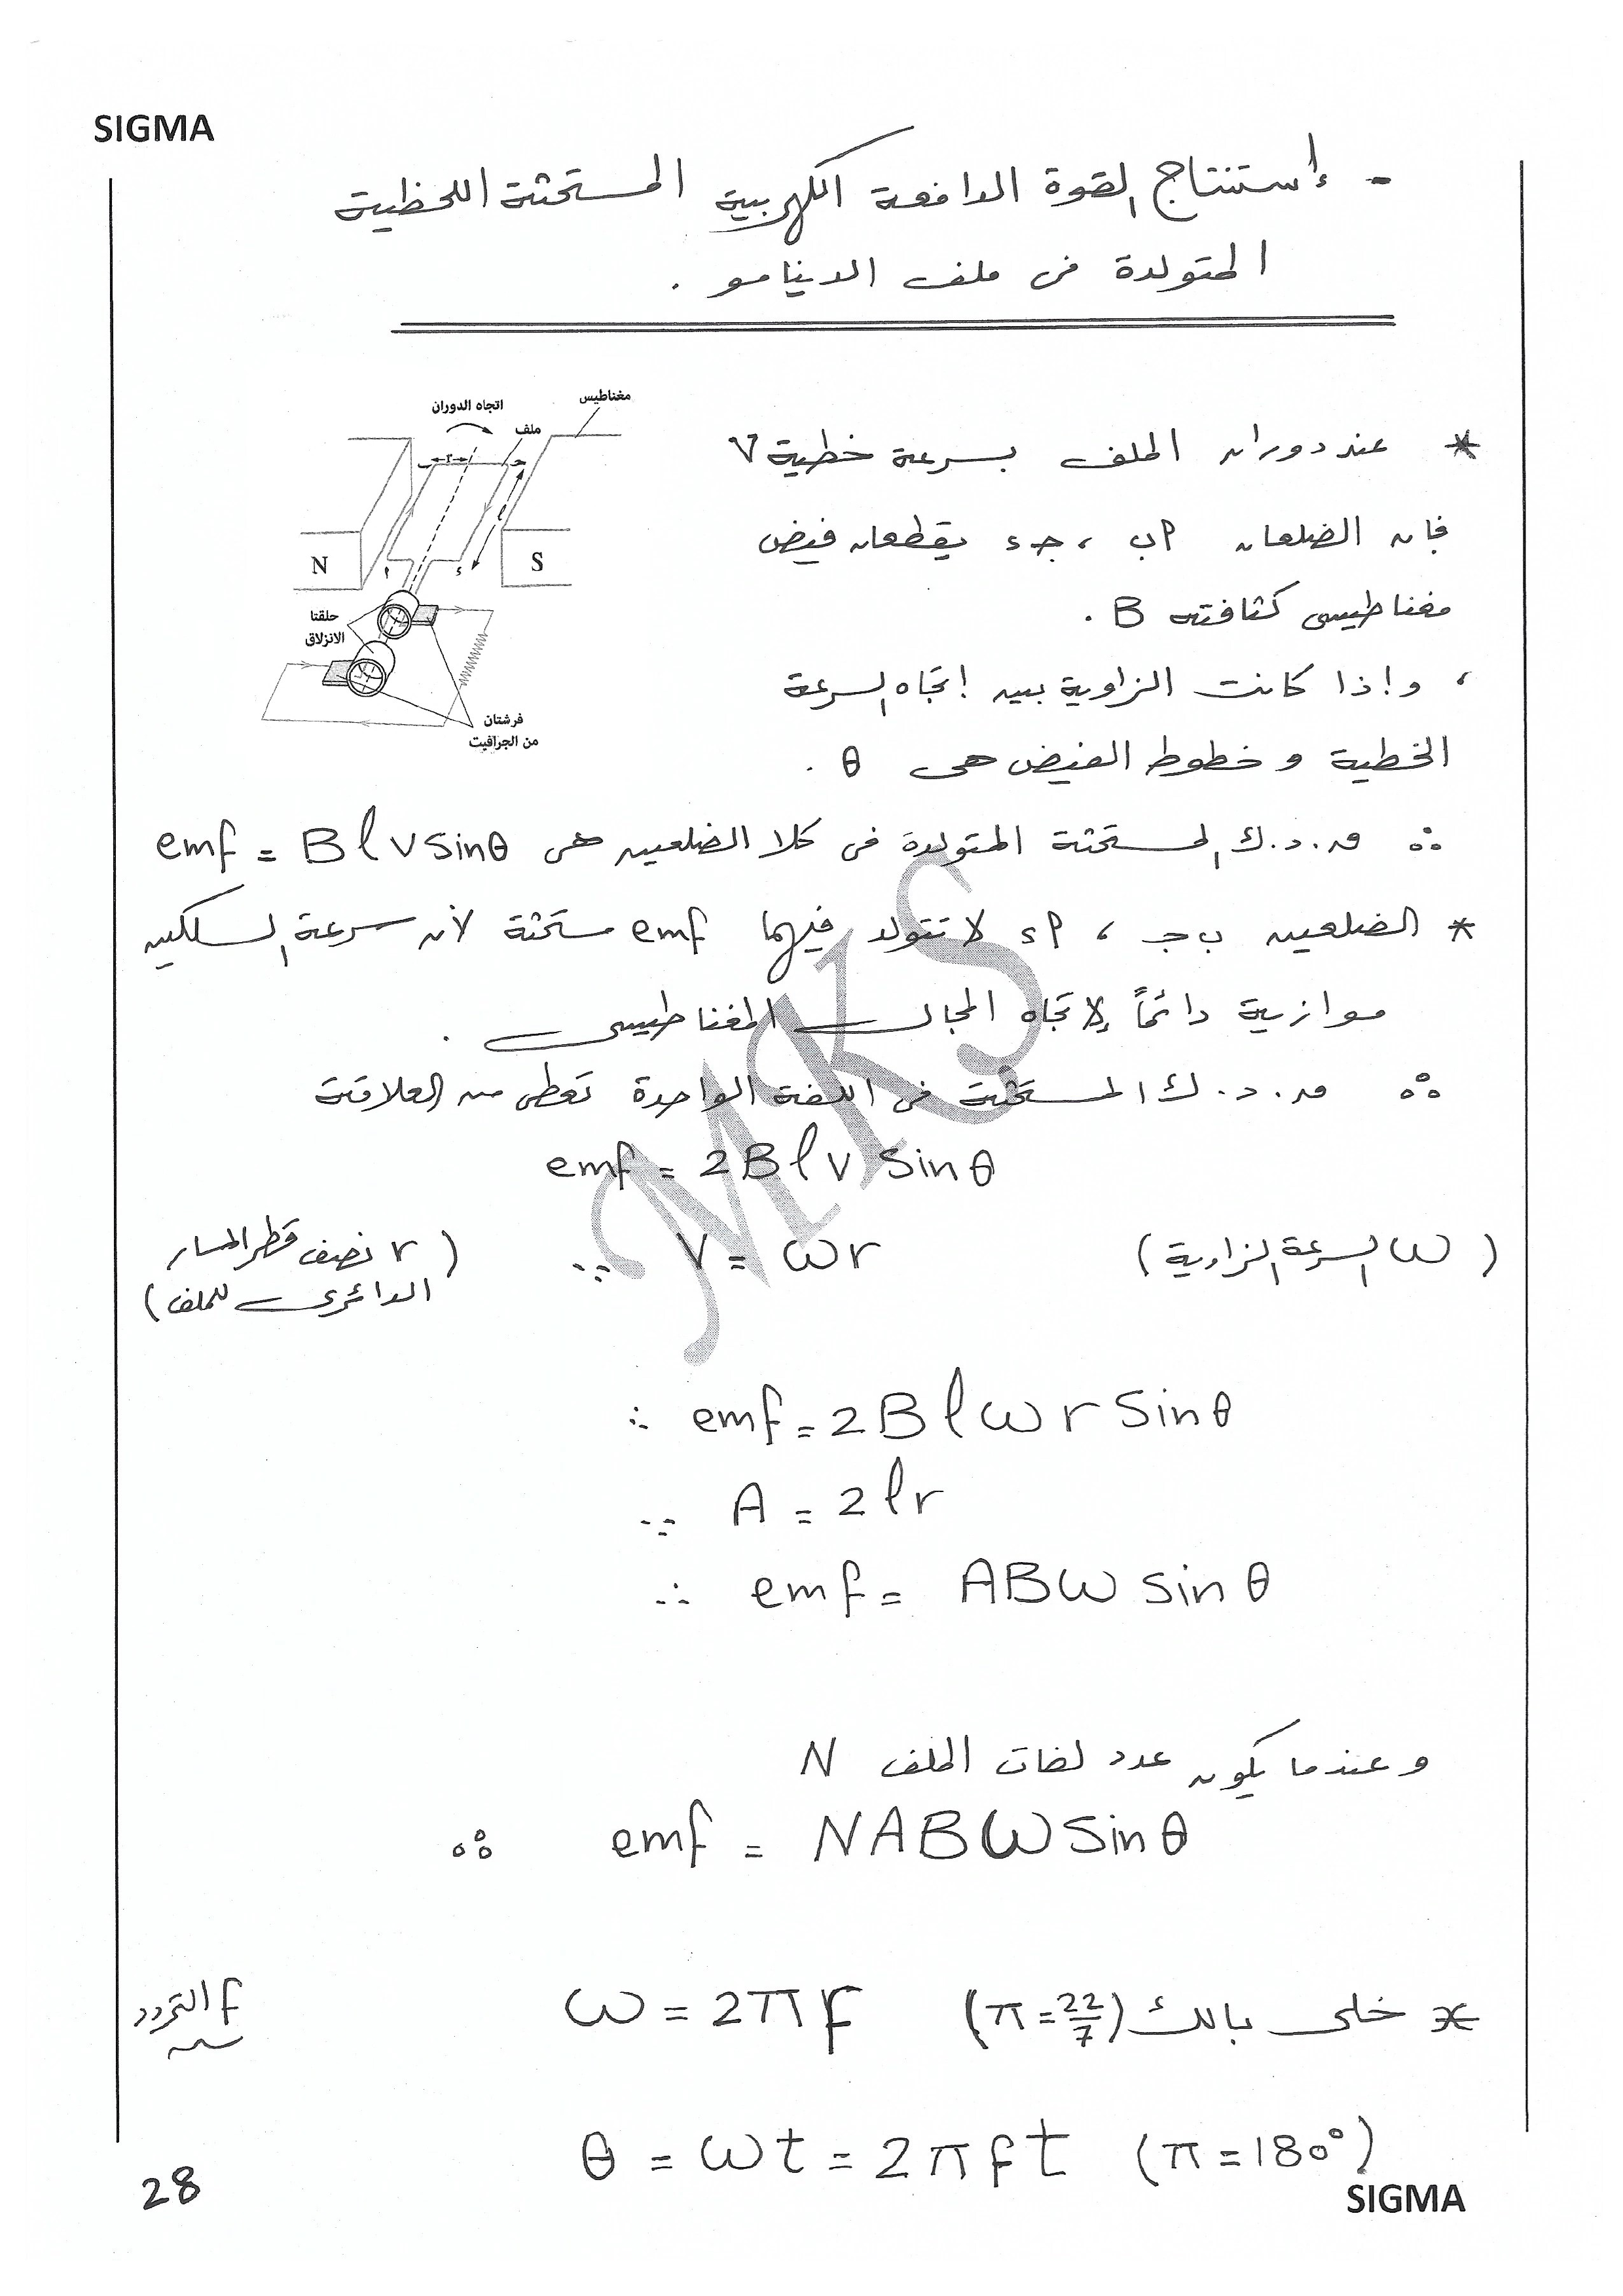 SIGMA
- إستنتاج القوة الدافعة الكهربية المستحثة اللحظية
المتولدة فى ملف الدينامو .
اتجاه الدوران
مغناطيس
ملف
r
ب
جـ
l
N
S
أ
ء
حلقتا
الانزلاق
فرشتان
من الجرافيت
* عند دوران الملف بسرعة خطية V
فإن الضلعان أب ، جـ ء يقطعان فيض
مغناطيسى كثافته B .
، وإذا كانت الزاوية بين إتجاه السرعة
الخطية وخطوط الفيض هى θ .
∴ ق.د.ك المستحثة المتولدة فى كلا الضلعين هى emf = B l v sinθ
* الضلعين ب جـ ، أ ء لا تتولد فيهما emf مستحثة لأن سرعة السلكين
موازية دائماً لإتجاه المجال المغناطيسى .
∴ ق.د.ك المستحثة فى اللفة الواحدة تعطى من العلاقة
emf = 2 B l v sin θ
(ω السرعة الزاوية) ∵ v = ωr (r نصف قطر المسار
الدائرى للملف)
∴ emf = 2 B l ω r sin θ
∵ A = 2 l r
∴ emf = A B ω sin θ
وعندما يكون عدد لفات الملف N
∴ emf = N A B ω sin θ
* خلى بالك (π = 22/7) ω = 2πF f التردد
θ = ωt = 2πft (π = 180°)
28
SIGMA
MKS